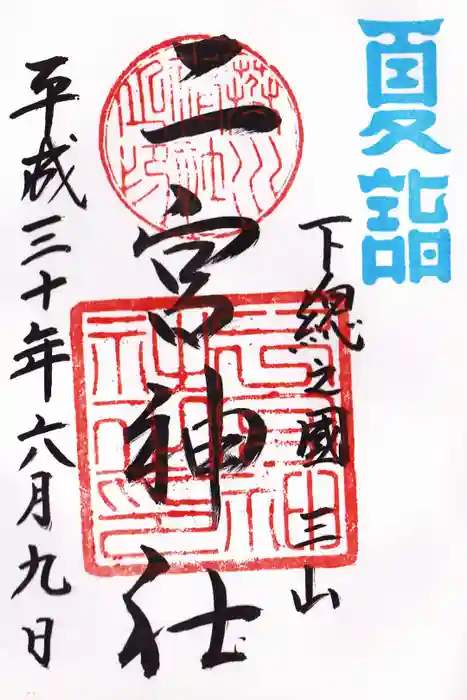 夏詣
下総之國 三山
二宮神社
平成三十年六月九日